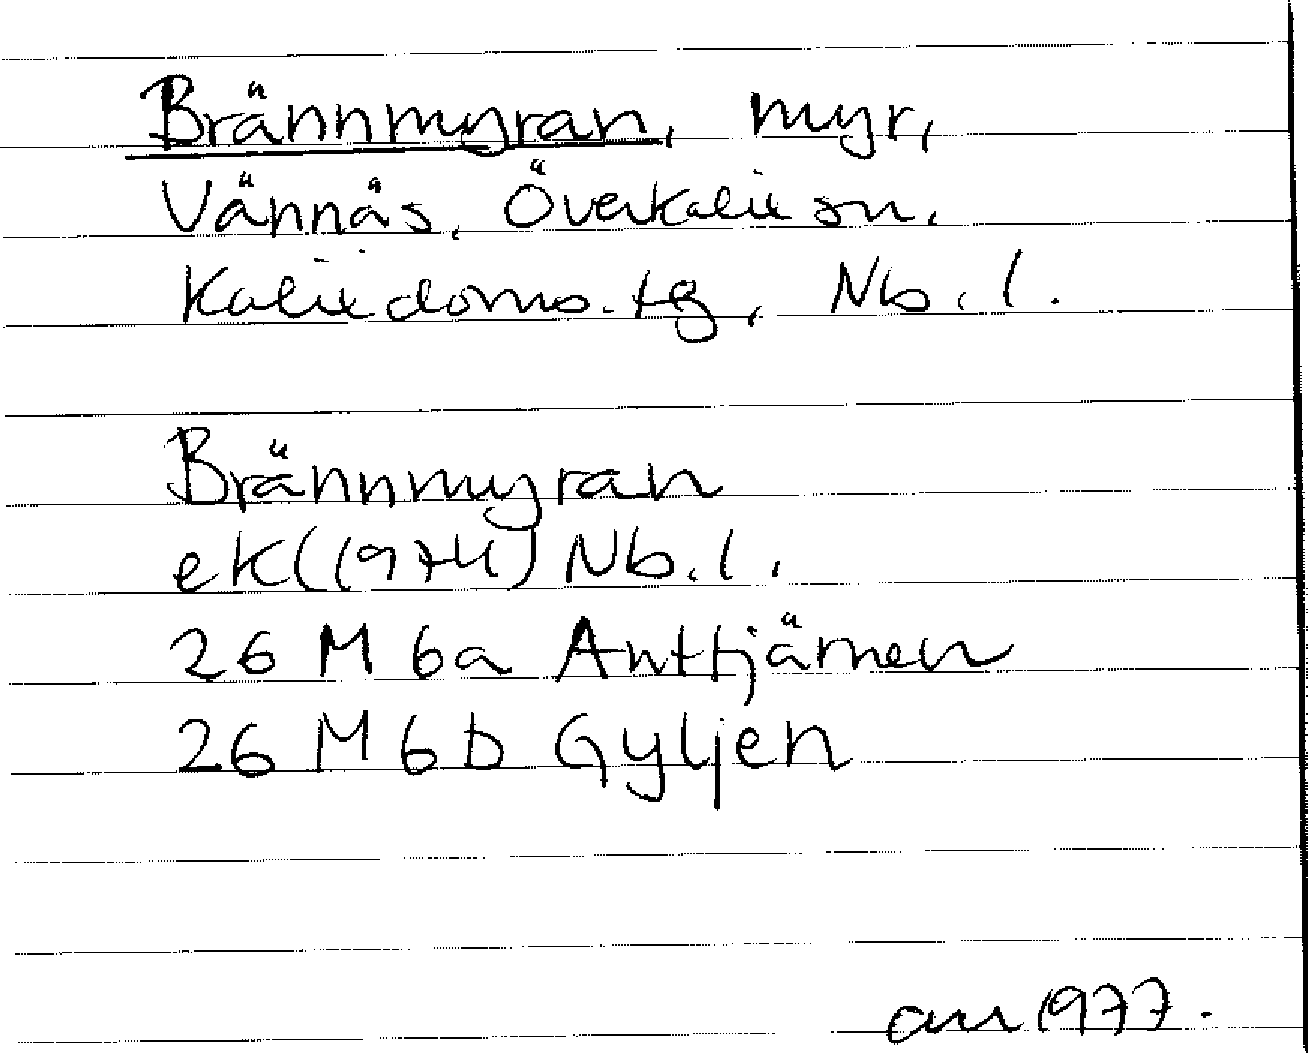 Brännmyran, myr,
Vännäs, Överkalix sn,
Kalix doms. tg, Nb. l.
Brännmyran
ek (1974) Nb. l.
26 M 6a Anttjärnen
26 M 6b Gyljen
1977.